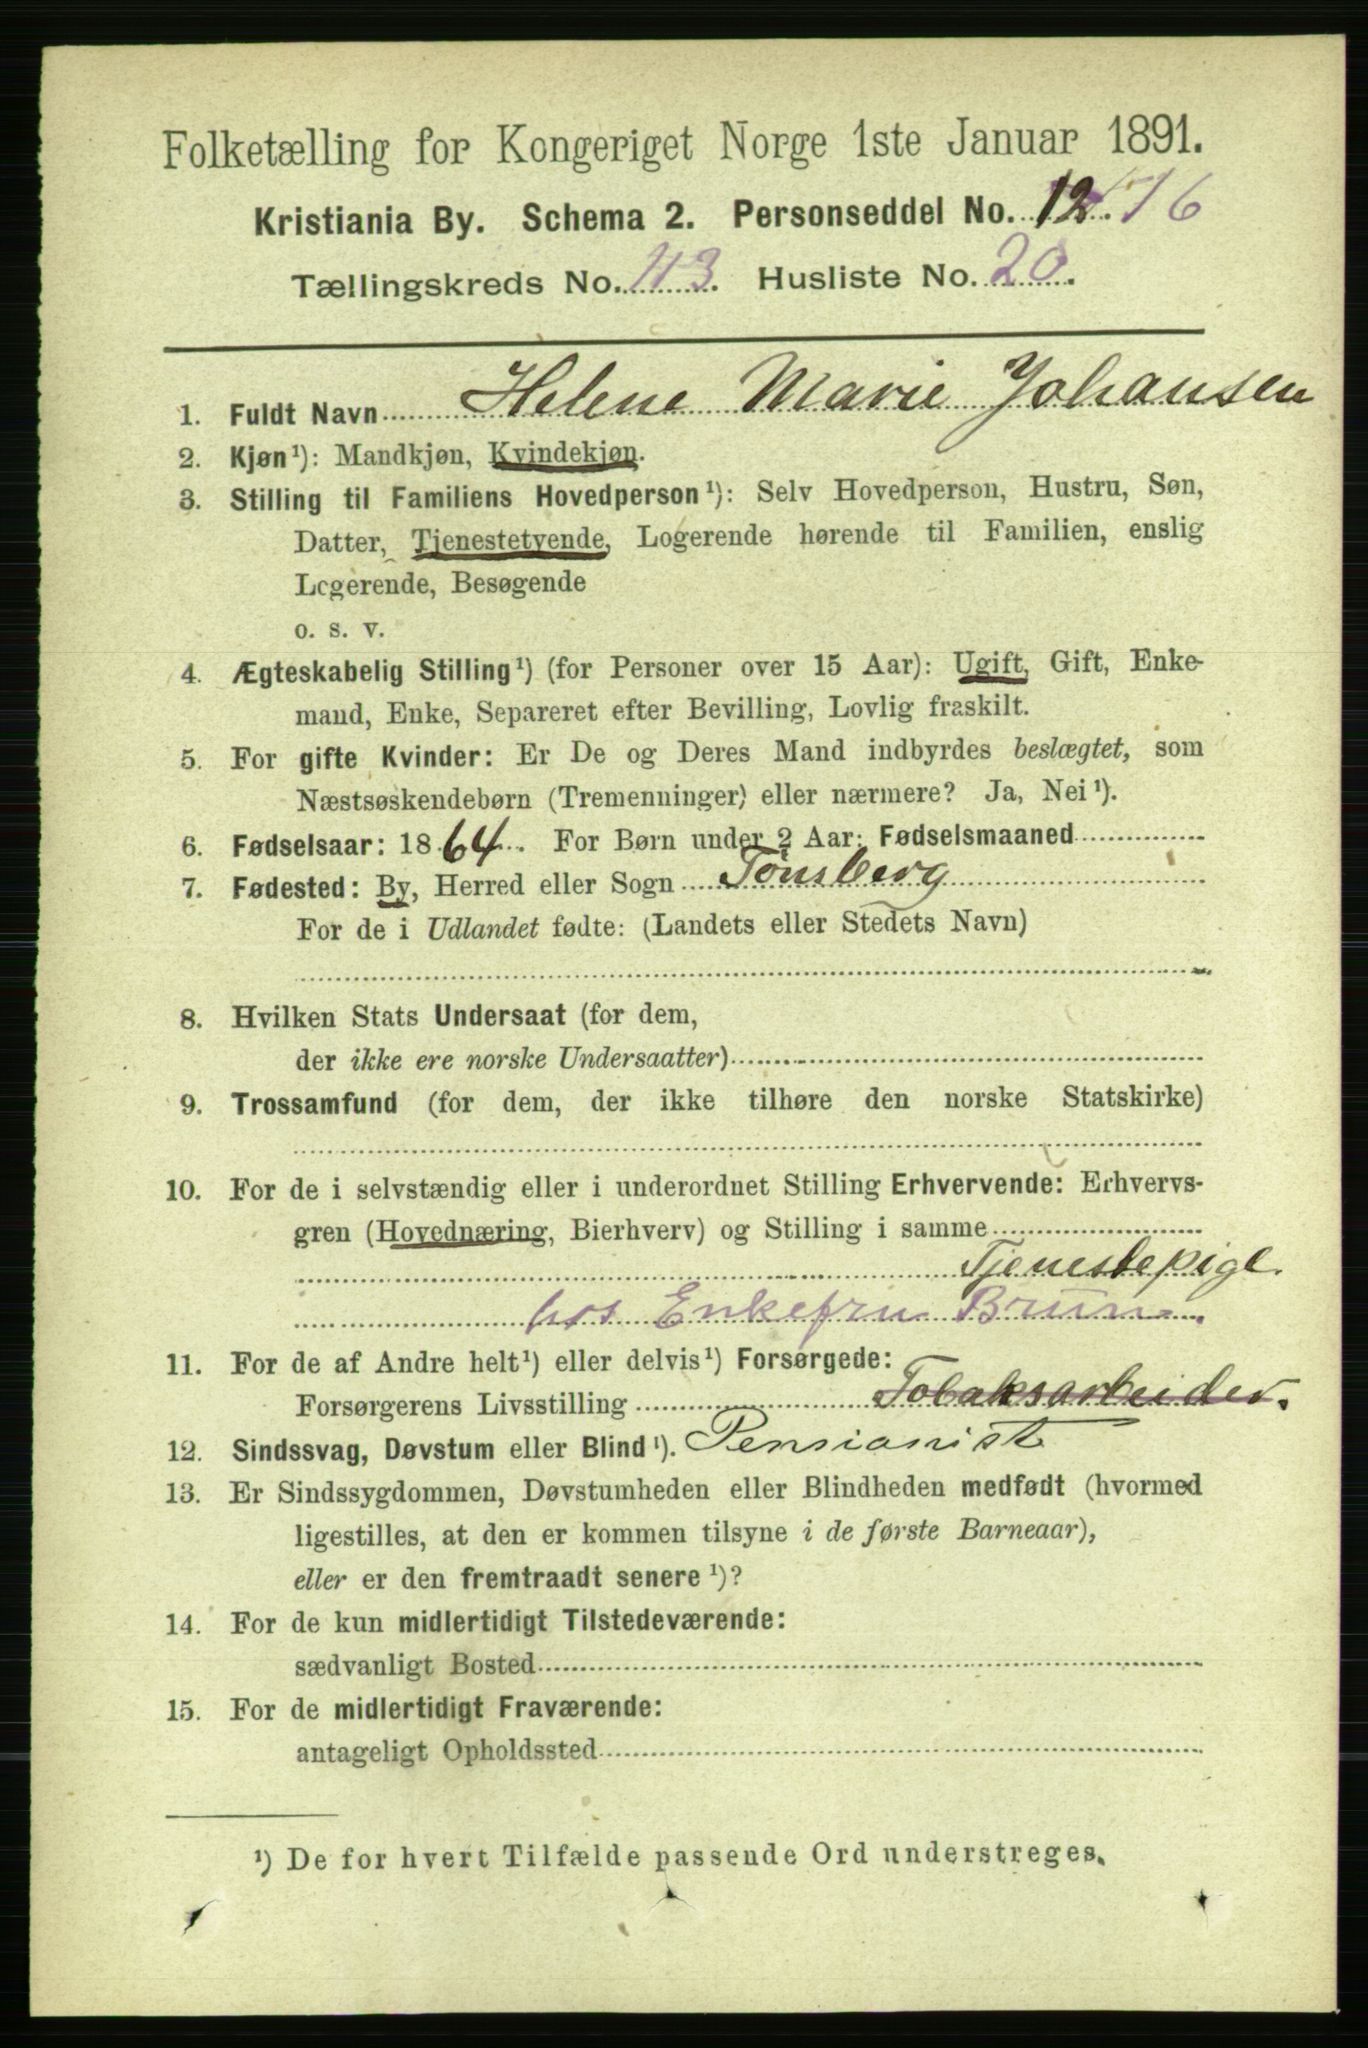 Folketælling for Kongeriget Norge 1ste Januar 1891.
Kristiania By. Schema 2. Personseddel No. 12. 16
Tællingskreds No. 113. Husliste No. 20.
1. Fuldt Navn Helene Marie Johansen
2. Kjøn¹): Mandkjøn, Kvindekjøn.
3. Stilling til Familiens Hovedperson¹): Selv Hovedperson, Hustru, Søn,
Datter, Tjenestetyende, Logerende hørende til Familien, enslig
Logerende, Besøgende
o. s. v.
4. Ægteskabelig Stilling¹) (for Personer over 15 Aar): Ugift, Gift, Enke-
mand, Enke, Separeret efter Bevilling, Lovlig fraskilt.
5. For gifte Kvinder: Er De og Deres Mand indbyrdes beslægtet, som
Næstsøskendebørn (Tremenninger) eller nærmere? Ja, Nei¹).
6. Fødselsaar: 1864. For Børn under 2 Aar: Fødselsmaaned
7. Fødested: By, Herred eller Sogn Tönsberg
For de i Udlandet fødte: (Landets eller Stedets Navn)
8. Hvilken Stats Undersaat (for dem,
der ikke ere norske Undersaatter)
9. Trossamfund (for dem, der ikke tilhøre den norske Statskirke)
10. For de i selvstændig eller i underordnet Stilling Erhvervende: Erhvervs-
gren (Hovednæring, Bierhverv) og Stilling i samme
Tjenestepige
hos Enkefru Brun.
11. For de af Andre helt¹) eller delvis¹) Forsørgede:
Forsørgerens Livsstilling Tobaksarbeider.
12. Sindssvag, Døvstum eller Blind¹). Pensionist
13. Er Sindssygdommen, Døvstumheden eller Blindheden medfødt (hvormed
ligestilles, at den er kommen tilsyne i de første Barneaar),
eller er den fremtraadt senere¹)?
14. For de kun midlertidigt Tilstedeværende:
sædvanligt Bosted
15. For de midlertidigt Fraværende:
antageligt Opholdssted
¹) De for hvert Tilfælde passende Ord understreges.